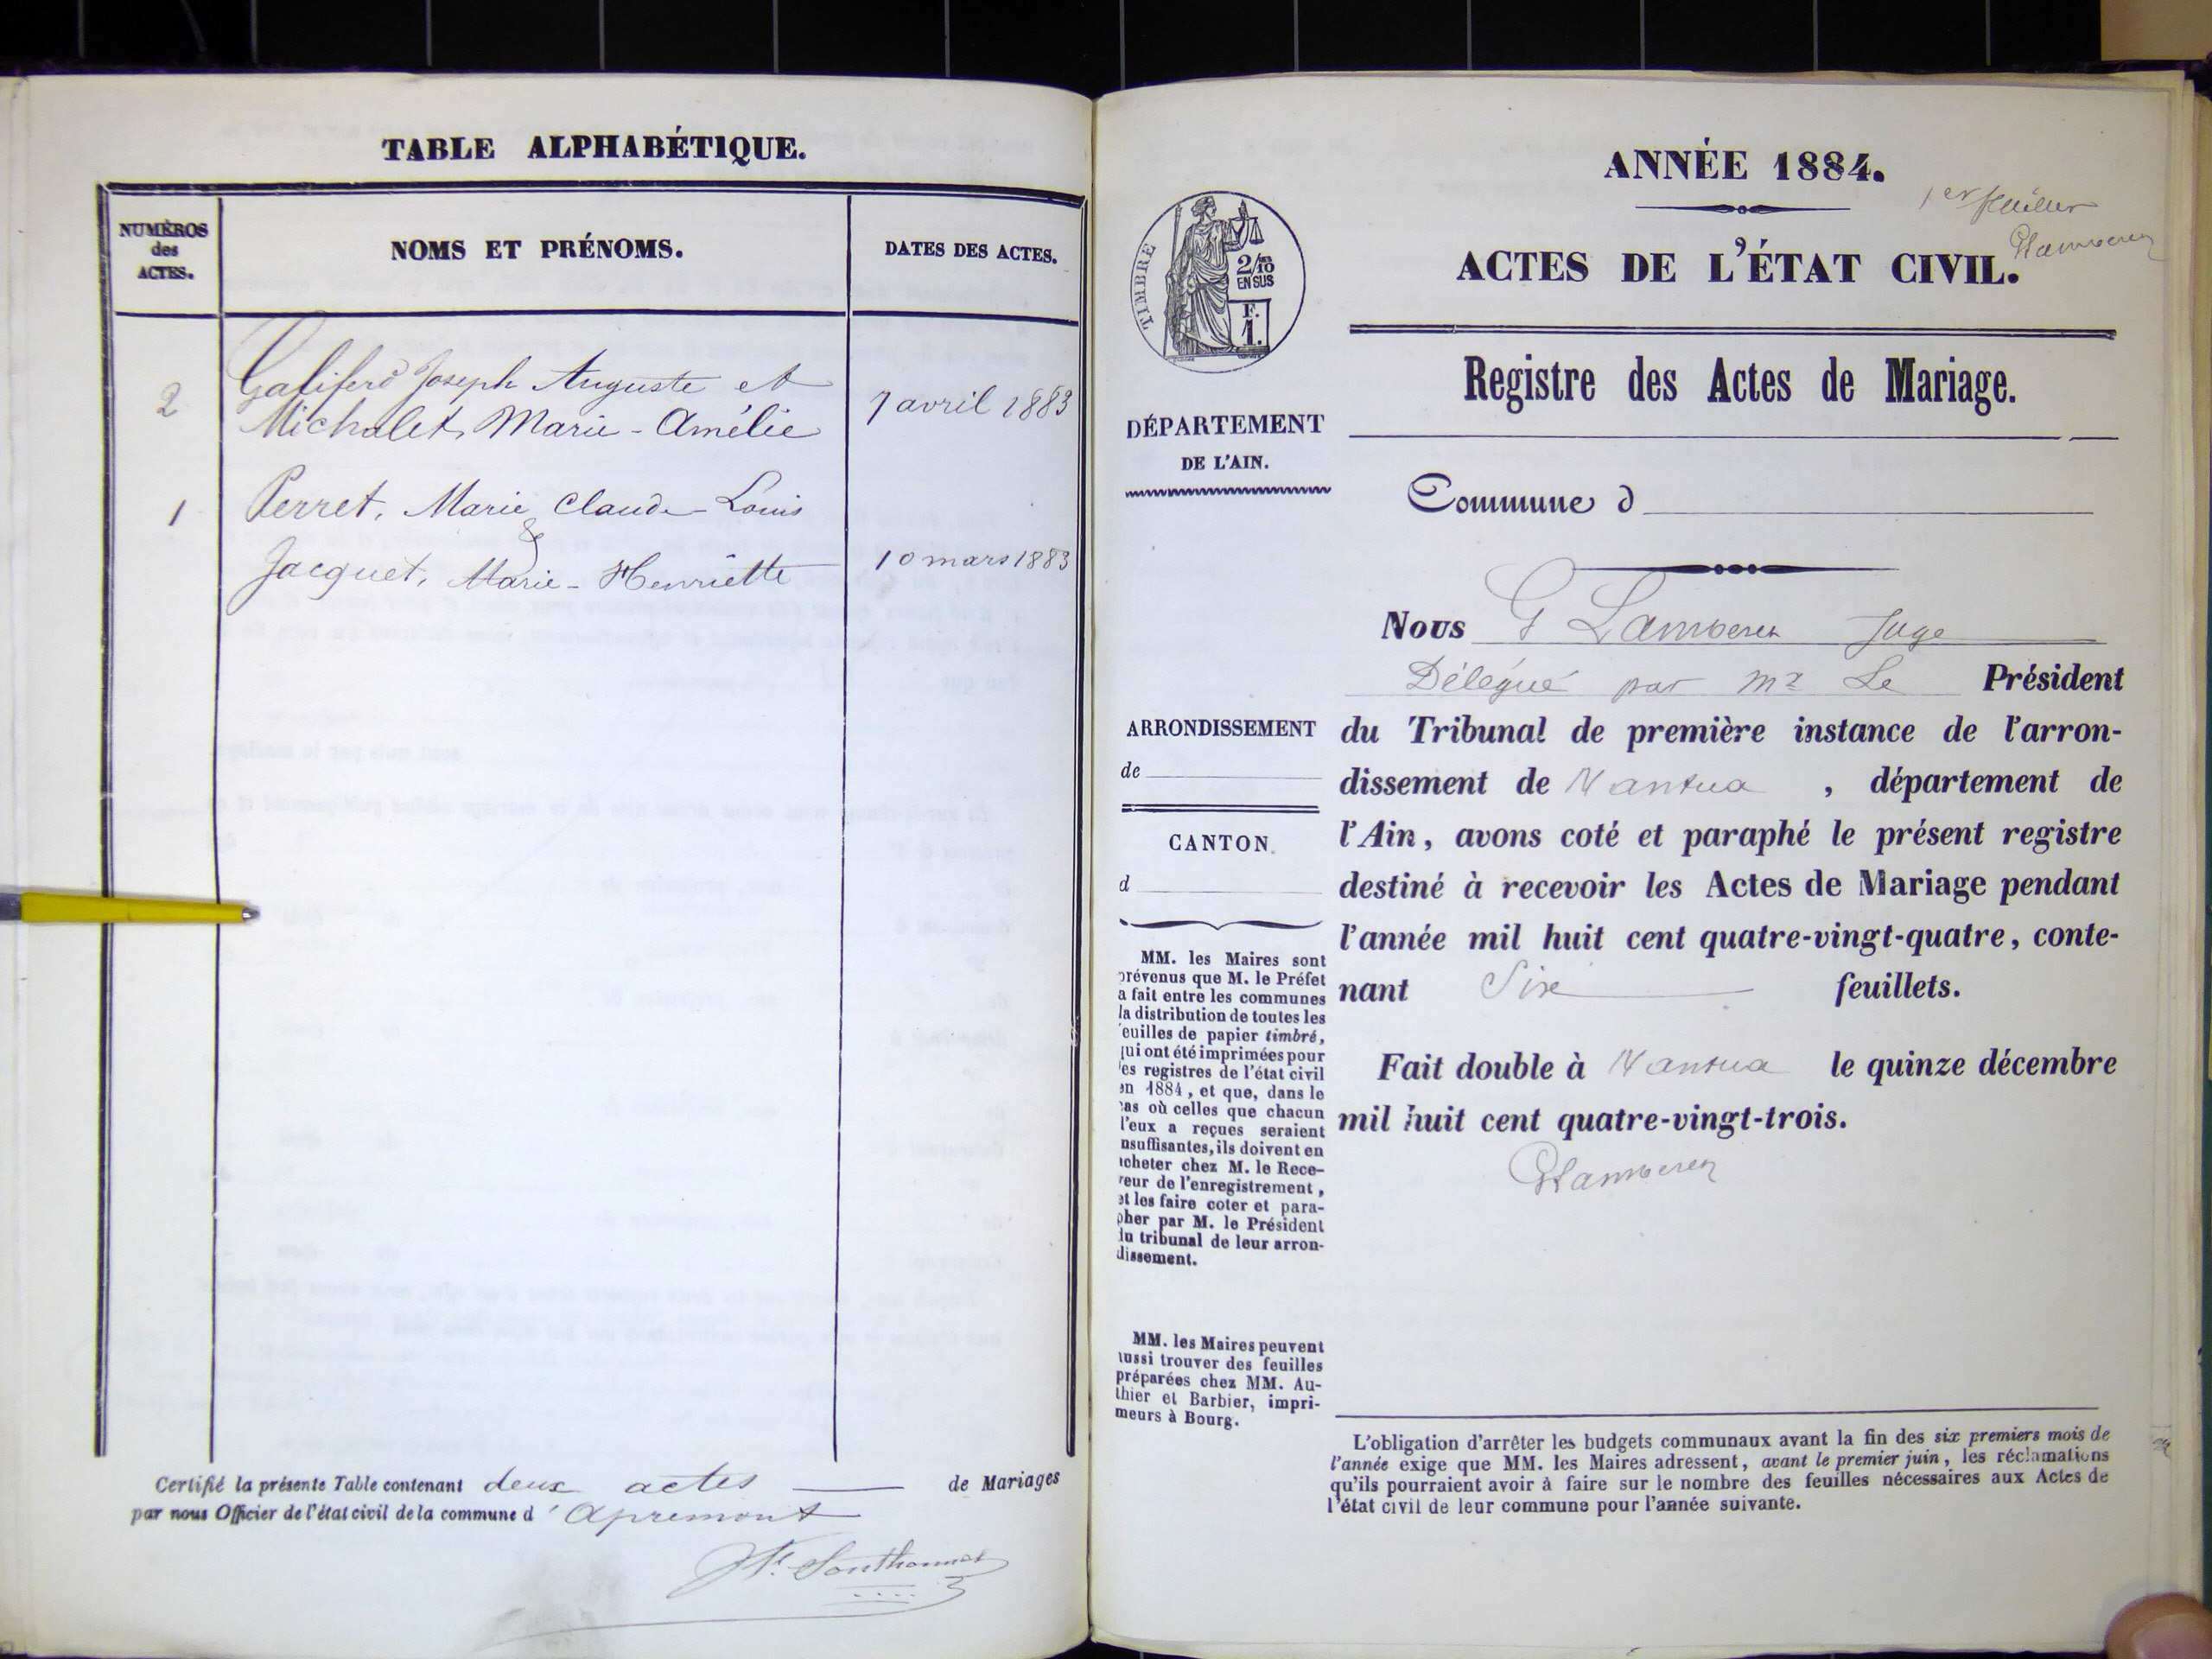 TABLE ALPHABÉTIQUE.
NUMÉROS
des
ACTES.
NOMS ET PRÉNOMS.
DATES DES ACTES.
Joseph Auguste et
2
7 avril 1883
Michalet, Marie-Amélie
1
Perret, Marie Claude-Louis
&
Jacquet, Marie-Henriette
10 mars 1883
Certifié la présente Table contenant deux actes de Mariages
par nous Officier de l'état civil de la commune d'Apremont
ANNÉE 1884.
1er feuillet
ACTES DE L'ÉTAT CIVIL.
TIMBRE
2/10
EN SUS
F.
1.
Registre des Actes de Mariage.
DÉPARTEMENT
DE L'AIN.
Commune d
Nous G Lamberen Juge
Délégué par Mr Le Président
ARRONDISSEMENT
de
CANTON
d
du Tribunal de première instance de l'arron-
dissement de Nantua, département de
l'Ain, avons coté et paraphé le présent registre
destiné à recevoir les Actes de Mariage pendant
l'année mil huit cent quatre-vingt-quatre, conte-
nant Six feuillets.
Fait double à Nantua le quinze décembre
mil huit cent quatre-vingt-trois.
GLamberen
MM. les Maires sont
prévenus que M. le Préfet
a fait entre les communes
la distribution de toutes les
feuilles de papier timbré,
qui ont été imprimées pour
les registres de l'état civil
en 1884, et que, dans le
cas où celles que chacun
d'eux a reçues seraient
insuffisantes, ils doivent en
acheter chez M. le Rece-
veur de l'enregistrement,
et les faire coter et para-
pher par M. le Président
du tribunal de leur arron-
dissement.
MM. les Maires peuvent
aussi trouver des feuilles
préparées chez MM. Au-
thier et Barbier, impri-
meurs à Bourg.
L'obligation d'arrêter les budgets communaux avant la fin des six premiers mois de
l'année exige que MM. les Maires adressent, avant le premier juin, les réclamations
qu'ils pourraient avoir à faire sur le nombre des feuilles nécessaires aux Actes de
l'état civil de leur commune pour l'année suivante.